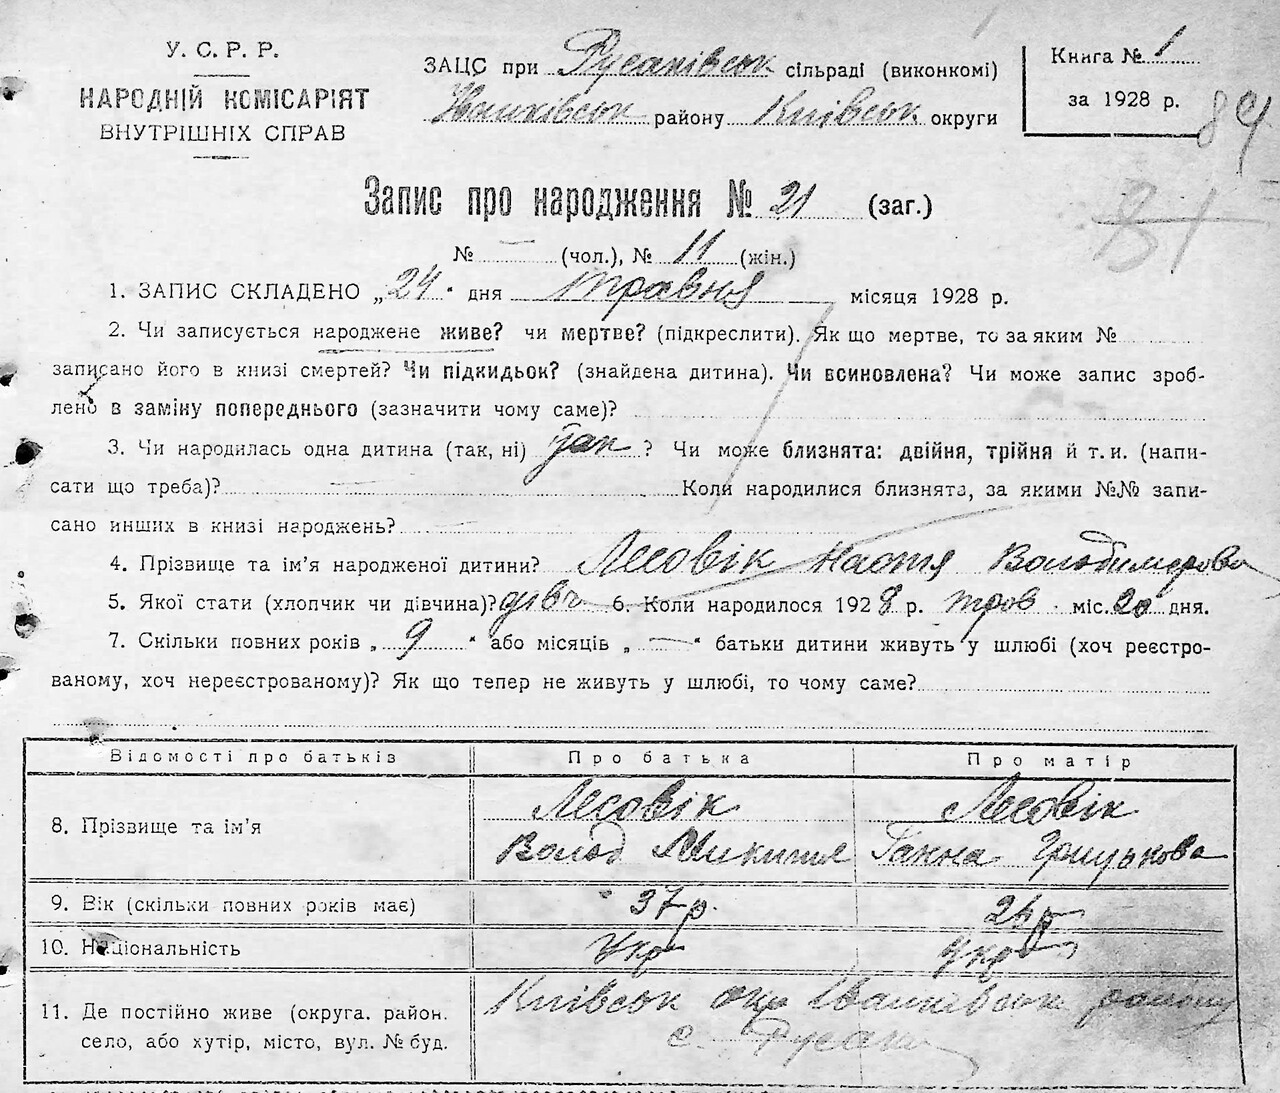 У. С. Р. Р.
НАРОДНІЙ КОМІСАРІЯТ
ВНУТРІШНІХ СПРАВ
ЗАЦС при Русаківськ сільраді (виконкомі)
Іванківськ району Київськ. округи
Книга № 1
за 1928 р.
84
81
Запис про народження № 21 (заг.)
№ — (чол.), № 11 (жін.)
1. ЗАПИС СКЛАДЕНО „24" дня травня місяця 1928 р.
2. Чи записується народжене живе? чи мертве? (підкреслити). Як що мертве, то за яким №
записано його в книзі смертей? Чи підкидьок? (знайдена дитина). Чи всиновлена? Чи може запис зроб-
лено в заміну попереднього (зазначити чому саме)?
3. Чи народилась одна дитина (так, ні) так ? Чи може близнята: двійня, трійня й т. и. (напи-
сати що треба)? — Коли народилися близнята, за якими №№ запи-
сано инших в книзі народжень? —
4. Прізвище та ім'я народженої дитини? Лесовік Настя Володимирова
5. Якої стати (хлопчик чи дівчина)? дівч 6. Коли народилося 1928 р. трав. міс. 20 дня.
7. Скільки повних років „ 9 " або місяців „ — " батьки дитини живуть у шлюбі (хоч реєстро-
ваному, хоч нереєстрованому)? Як що тепер не живуть у шлюбі, то чому саме?
Відомості про батьків Про батька Про матір
8. Прізвище та ім'я Лесовік Лесовік
Волод Микития Ганна Грицькова
9. Вік (скільки повних років має) 37 р. 24 р
10. Національність Укр Укр
11. Де постійно живе (округа, район, Київськ окр Іванківськ району
село, або хутір, місто, вул. № буд. с. Русаки